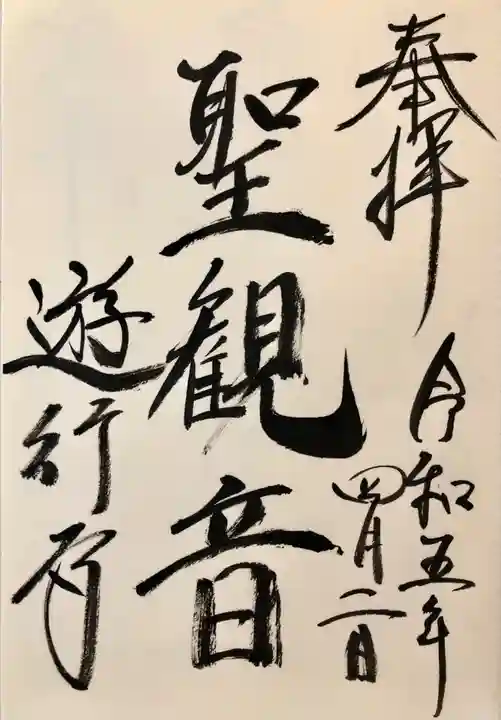 奉拝
令和五年
四月二日
聖観音
遊行寺